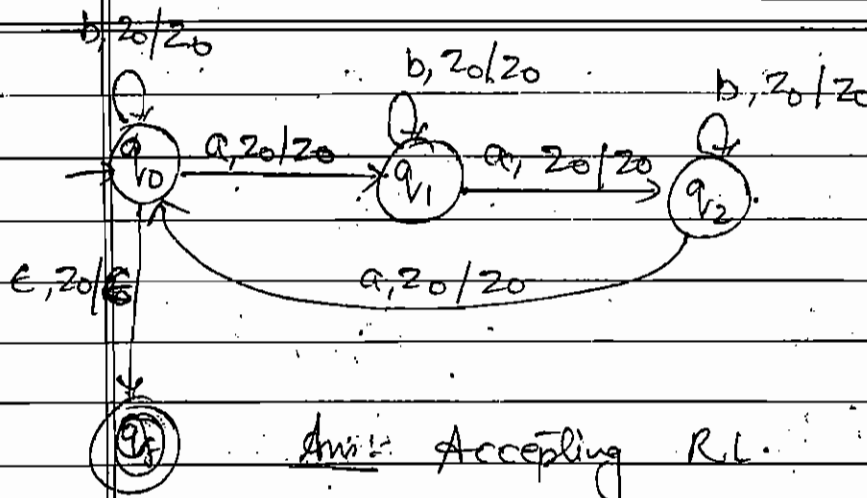 b, z0/z0
b, z0/z0
b, z0/z0
q0
a, z0/z0
q1
a, z0/z0
q2
ε, z0/ε
a, z0/z0
qf
Ans:- Accepting R.L.